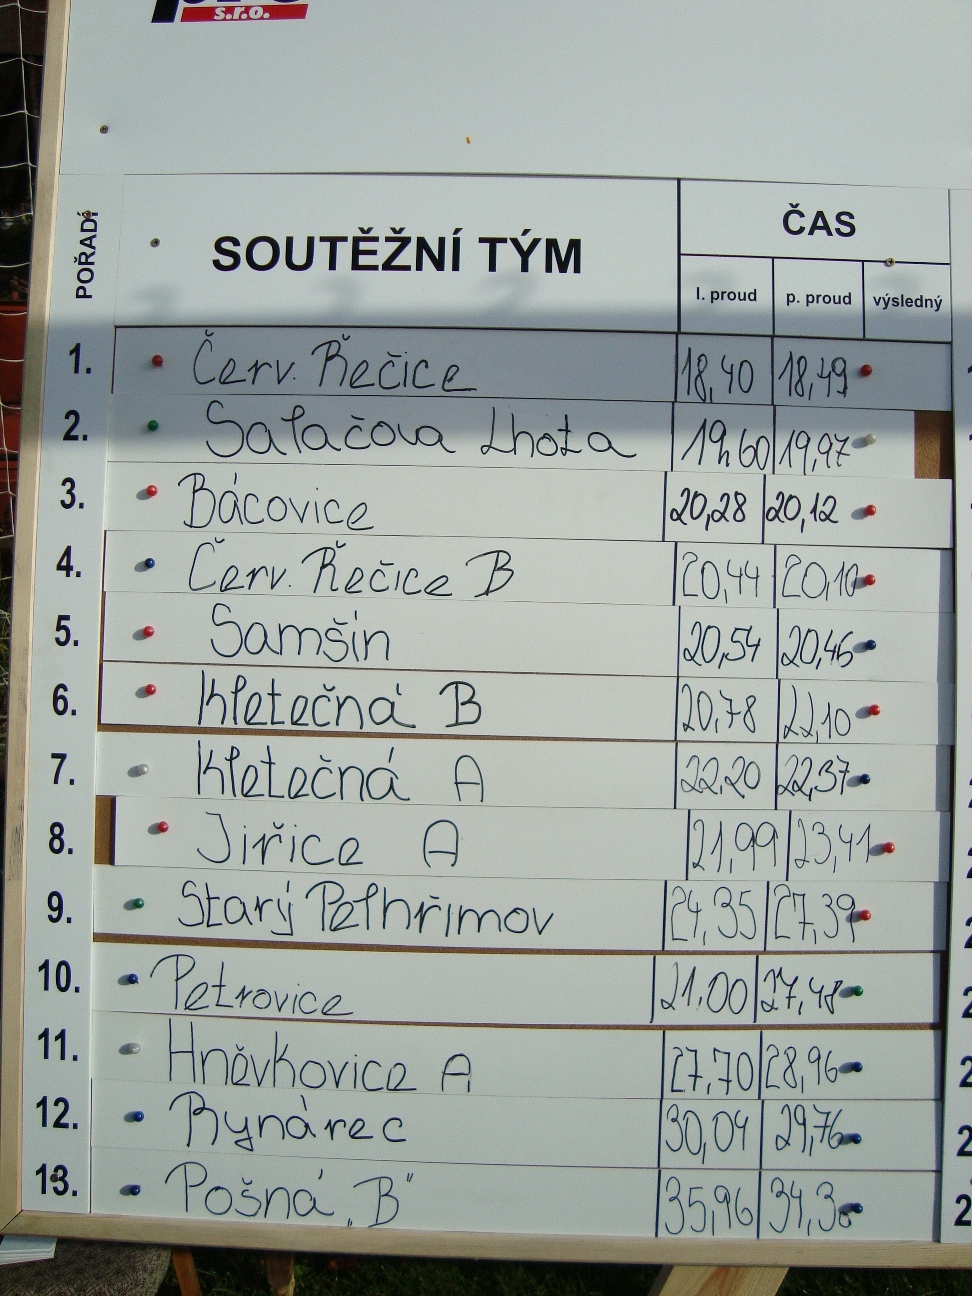 s.r.o.
POŘADÍ SOUTĚŽNÍ TÝM ČAS
l. proud p. proud výsledný
1. Červ. Řečice 18,40 18,49
2. Salačova Lhota 19,60 19,97
3. Bácovice 20,28 20,12
4. Červ. Řečice B 20,44 20,10
5. Samšín 20,54 20,46
6. Kletečná B 20,78 22,10
7. Kletečná A 22,20 22,37
8. Jiřice A 21,99 23,41
9. Starý Pelhřimov 24,35 27,39
10. Petrovice 21,00 27,48
11. Hněvkovice A 27,70 28,96
12. Rynárec 30,04 29,76
13. Pošná „B" 35,96